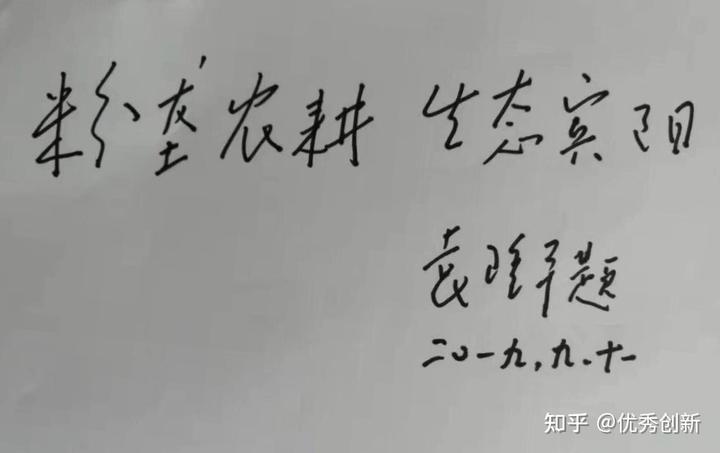 粉垄农耕 生态宾阳
袁隆平题
二〇一九.九.十一
知乎 @优秀创新